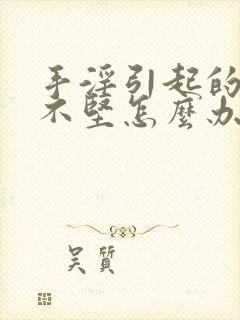 手淫引起的
不堅怎麼办
吳質